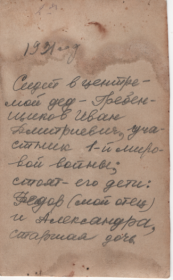 1931 год
Сидит в центре-
мой дед - Гребен-
щиков Иван
Дмитриевич, уча-
стник 1-й миро-
вой войны;
стоят - его дети:
Федор (мой отец)
и Александра,
старшая дочь